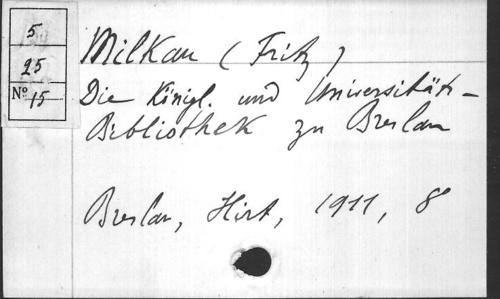 5
25
Nº 15
Milkau (Fritz)
Die Königl. und Universitäts-
Bibliothek zu Breslau
Breslau, Hirt, 1911, 8°